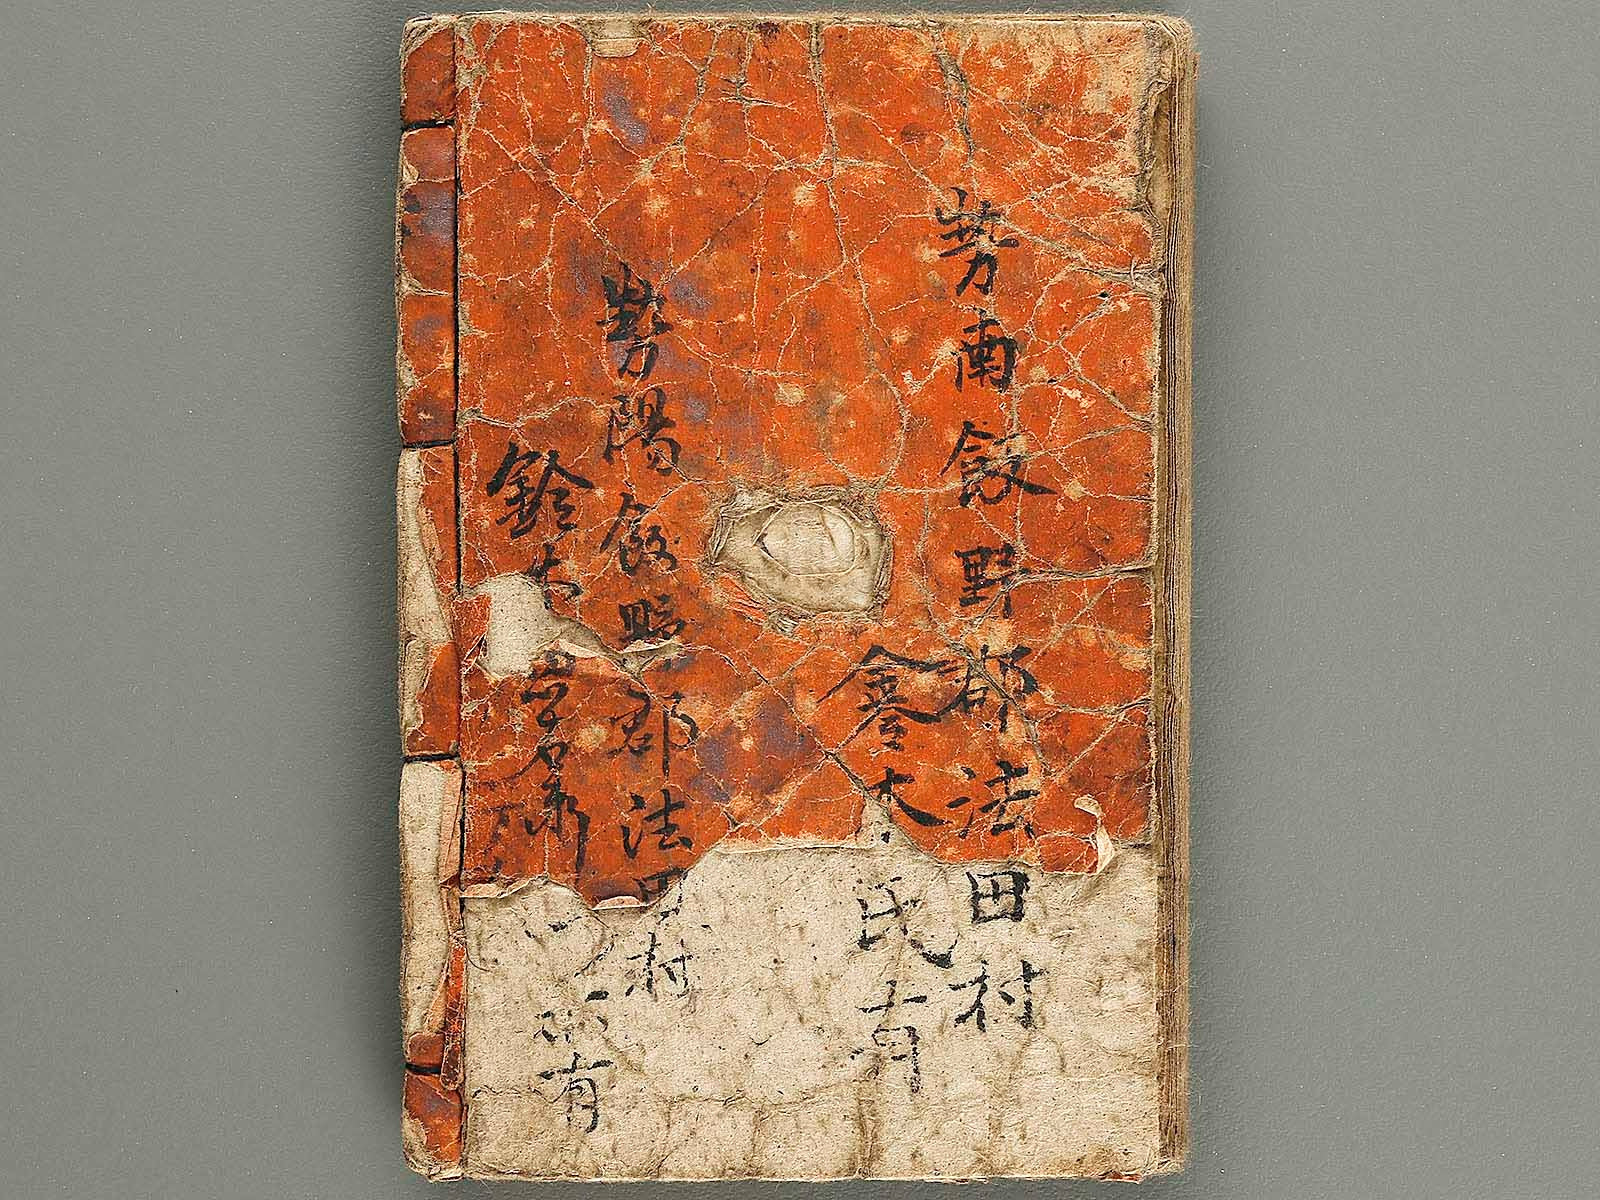 勢南飯野郡法田村
鈴木氏有
勢陽飯野郡法田村
鈴木
有